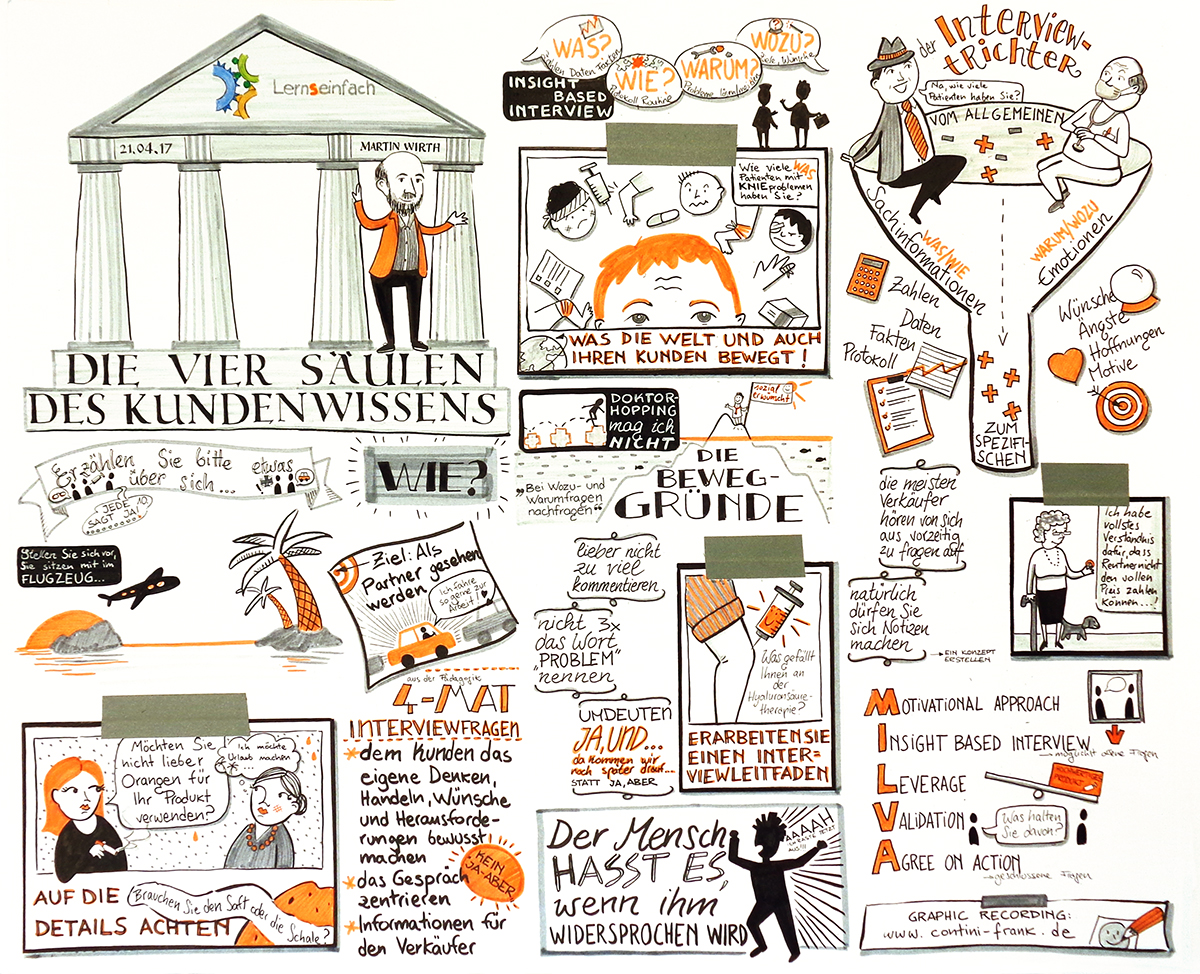 LernSeinfach
21.04.17
MARTIN WIRTH
DIE VIER SÄULEN
DES KUNDENWISSENS
Erzählen Sie bitte etwas
über sich...
JEDER
SAGT JA!
WIE?
Stellen Sie sich vor,
Sie sitzen mit im
FLUGZEUG...
Ziel: Als
Partner gesehen
werden
Ich fahre
so gerne zur
Arbeit!
Möchten Sie
nicht lieber
Orangen für
Ihr Produkt
verwenden?
Ich möchte
Urlaub machen
AUF DIE
DETAILS ACHTEN
Brauchen Sie den Saft oder die
Schale?
aus der Pädagogik
4-MAT
INTERVIEWFRAGEN
* dem Kunden das
eigene Denken,
Handeln, Wünsche
und Herausforde-
rungen bewusst
machen
* das Gespräch
zentrieren
* Informationen für
den Verkäufer
KEIN
JA-ABER
WAS?
Zahlen Daten Fakten
WIE?
Protokoll Routine
WARUM?
Probleme
WOZU?
Ziele, Wünsche
INSIGHT
BASED
INTERVIEW
Wie viele WAS
Patienten mit
KNIEproblemen
haben Sie?
WAS DIE WELT UND AUCH
IHREN KUNDEN BEWEGT!
DOKTOR-
HOPPING
mag ich
NICHT
sozial
erwünscht
DIE
BEWEG-
GRÜNDE
„Bei Wozu- und
Warumfragen
nachfragen"
lieber nicht
zu viel
kommentieren
nicht 3x
das Wort
"PROBLEM"
nennen
UMDEUTEN
JA, UND...
da kommen wir
noch später drauf...
STATT JA, ABER
Was gefällt
Ihnen an
der
Hyaluronsäure-
therapie?
ERARBEITEN SIE
EINEN INTER-
VIEWLEITFADEN
Der Mensch
HASST ES,
wenn ihm
WIDERSPROCHEN WIRD
AAAAH
der Interview-
trichter
Na, wie viele
Patienten haben Sie?
VOM ALLGEMEINEN
Sachinformationen
WAS/WIE
WARUM/WOZU
Emotionen
Zahlen
Daten
Fakten
Protokoll
Wünsche
Ängste
Hoffnungen
Motive
ZUM
SPEZIFI-
SCHEN
die meisten
Verkäufer
hören von sich
aus vorzeitig
zu fragen auf
natürlich
dürfen Sie
sich Notizen
machen
→ EIN KONZEPT
ERSTELLEN
Ich habe
vollstes
Verständnis
dafür, dass
Rentner nicht
den vollen
Preis zahlen
können...!
MOTIVATIONAL APPROACH
INSIGHT BASED INTERVIEW
→ möglichst offene Fragen
LEVERAGE
VALIDATION
Was halten
Sie davon?
AGREE ON ACTION
→ geschlossene Fragen
GRAPHIC RECORDING:
www.contini-frank.de